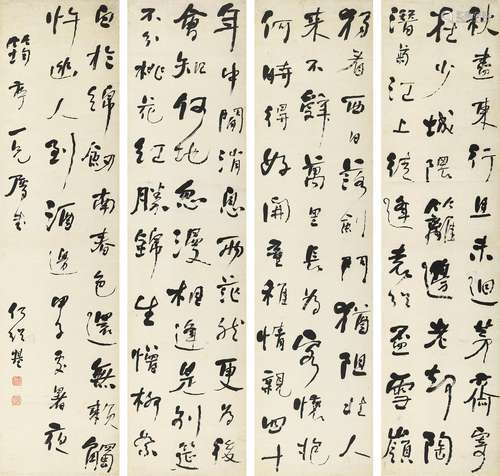 秋盡東行且未迴茅齋寄
在少城隈籬邊老却陶
潛菊江上徒逢袁紹盃雪嶺
獨看西日落劍門猶阻北人
來不辭萬里長為客懷抱
何時得好開童稚情親四十
年中間消息兩茫然更為後
會知何地忽漫相逢是別筵
不分桃花紅勝錦生憎柳絮
白於綿劍南春色還無賴觸
忤愁人到酒邊甲子暑夜
筠亭兄屬 何紹基